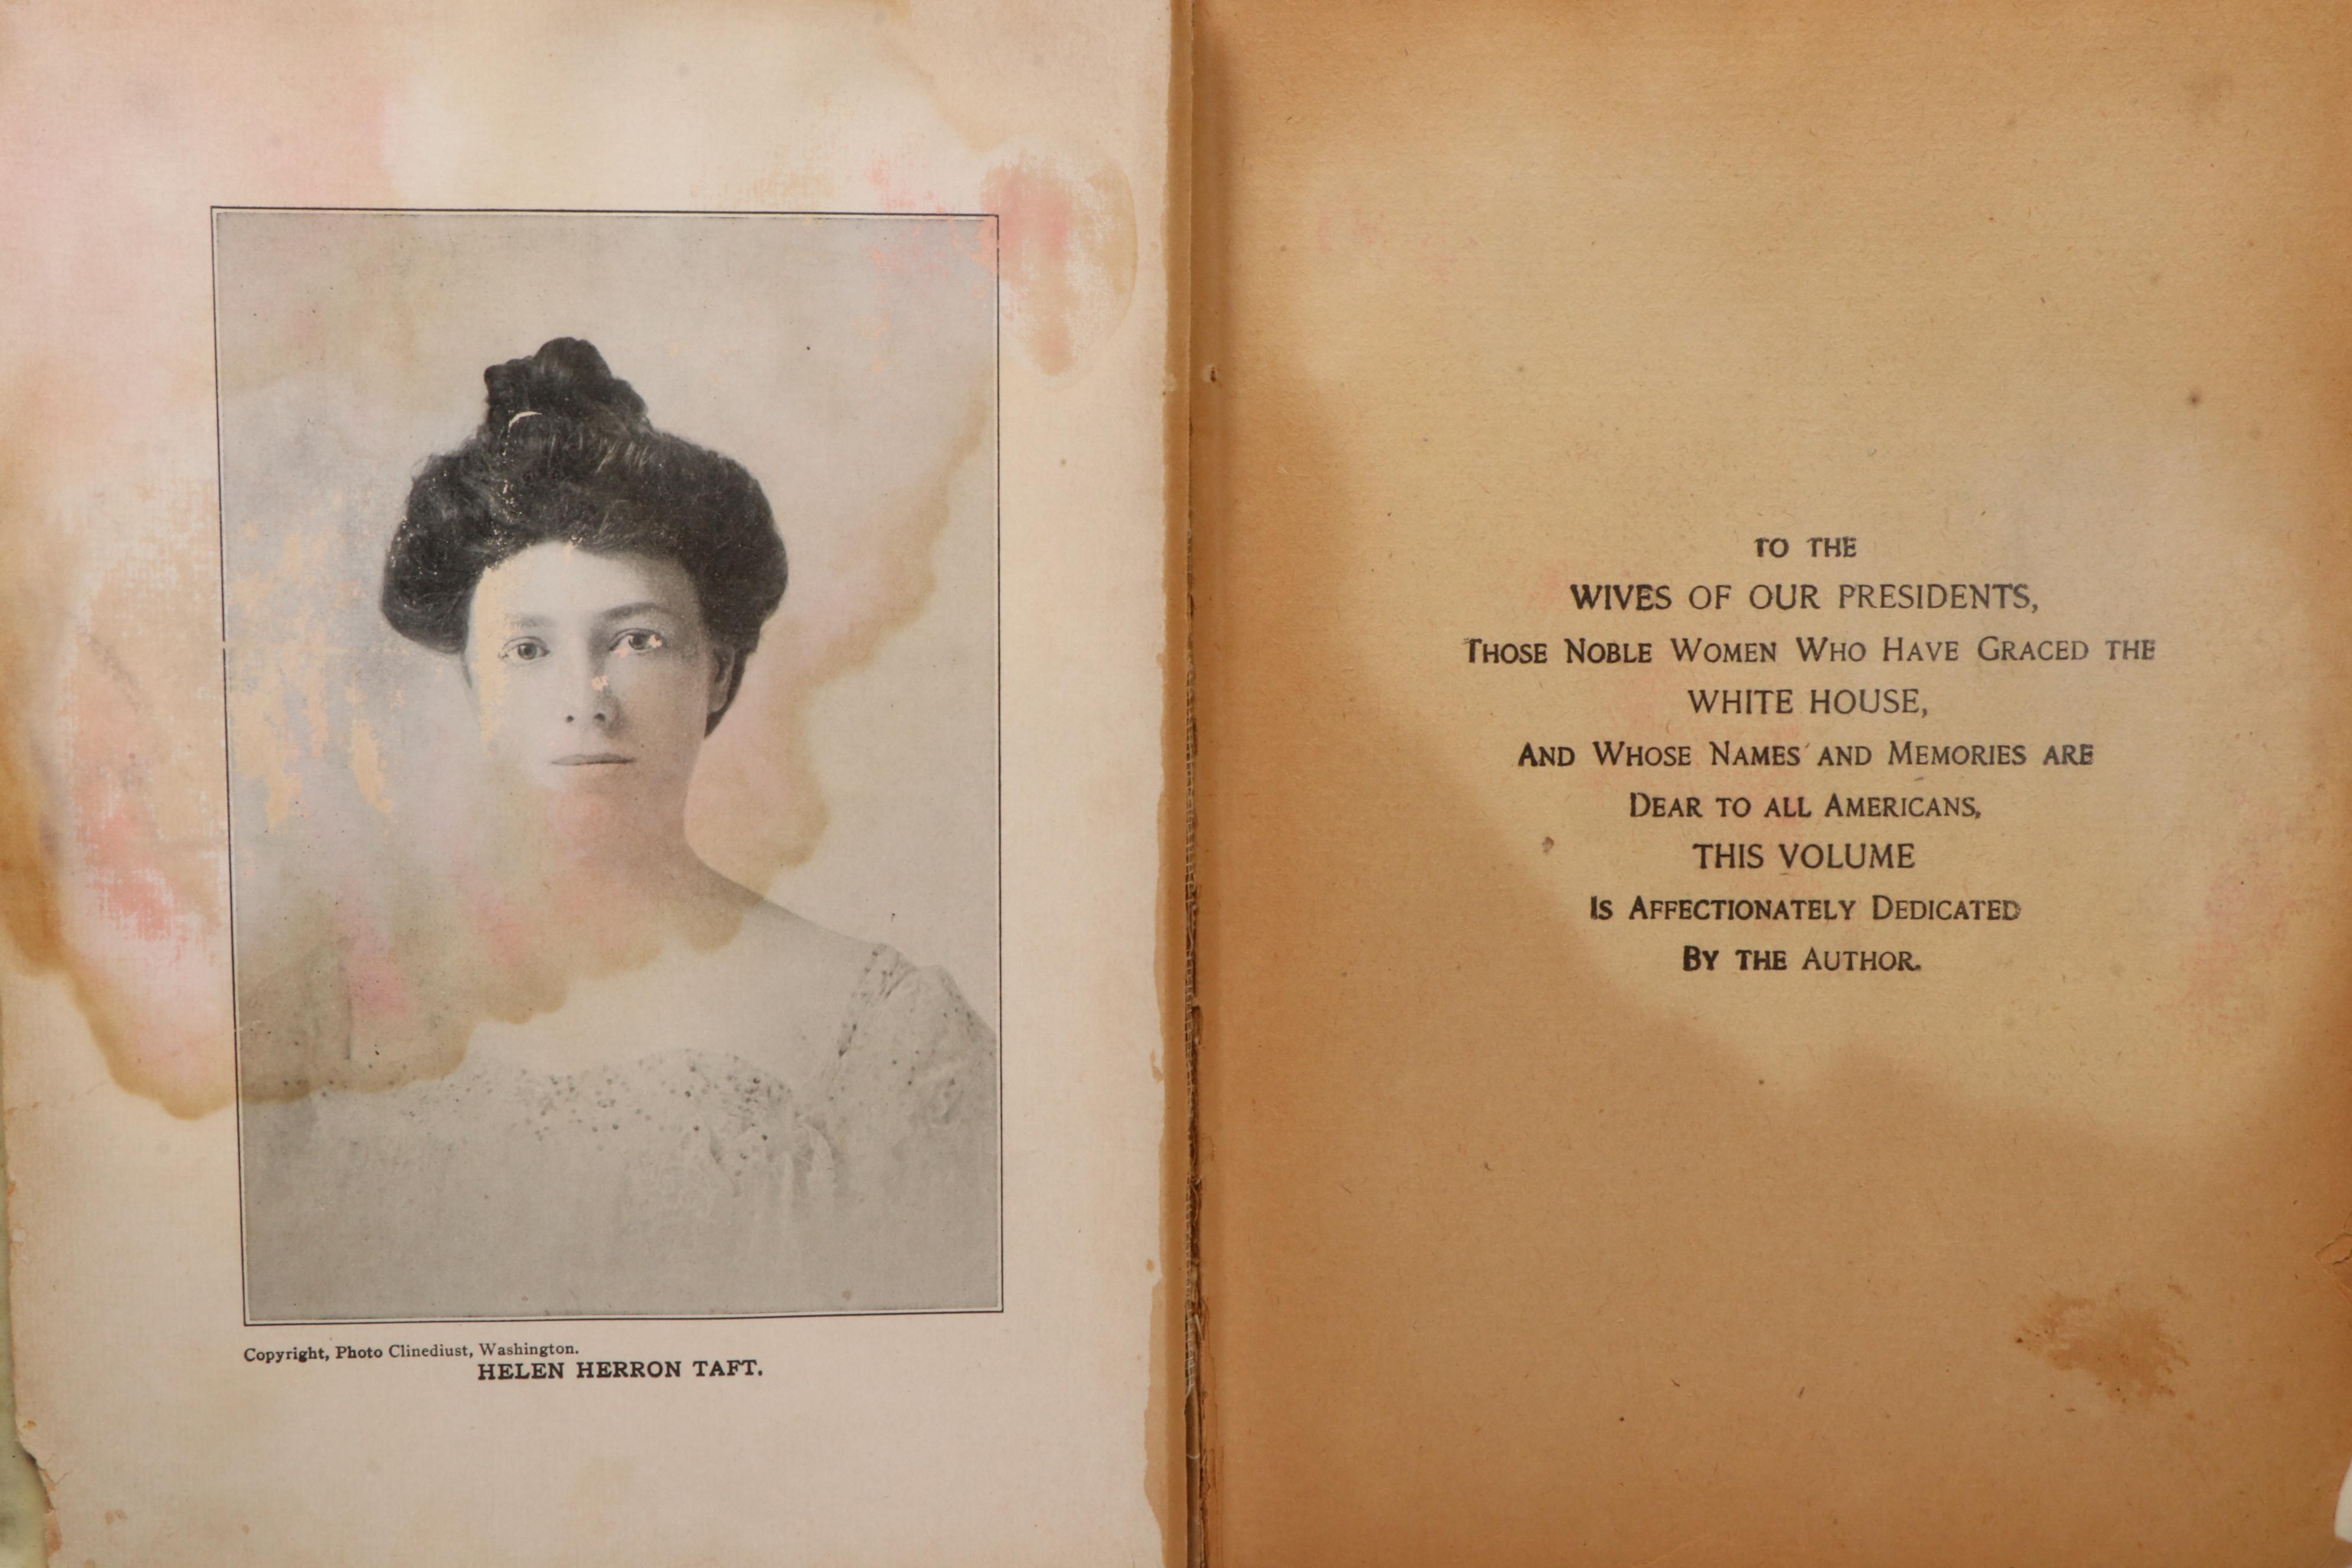 Copyright, Photo Clinediust, Washington.
HELEN HERRON TAFT.
TO THE
WIVES OF OUR PRESIDENTS,
THOSE NOBLE WOMEN WHO HAVE GRACED THE
WHITE HOUSE,
AND WHOSE NAMES AND MEMORIES ARE
DEAR TO ALL AMERICANS,
THIS VOLUME
IS AFFECTIONATELY DEDICATED
BY THE AUTHOR.